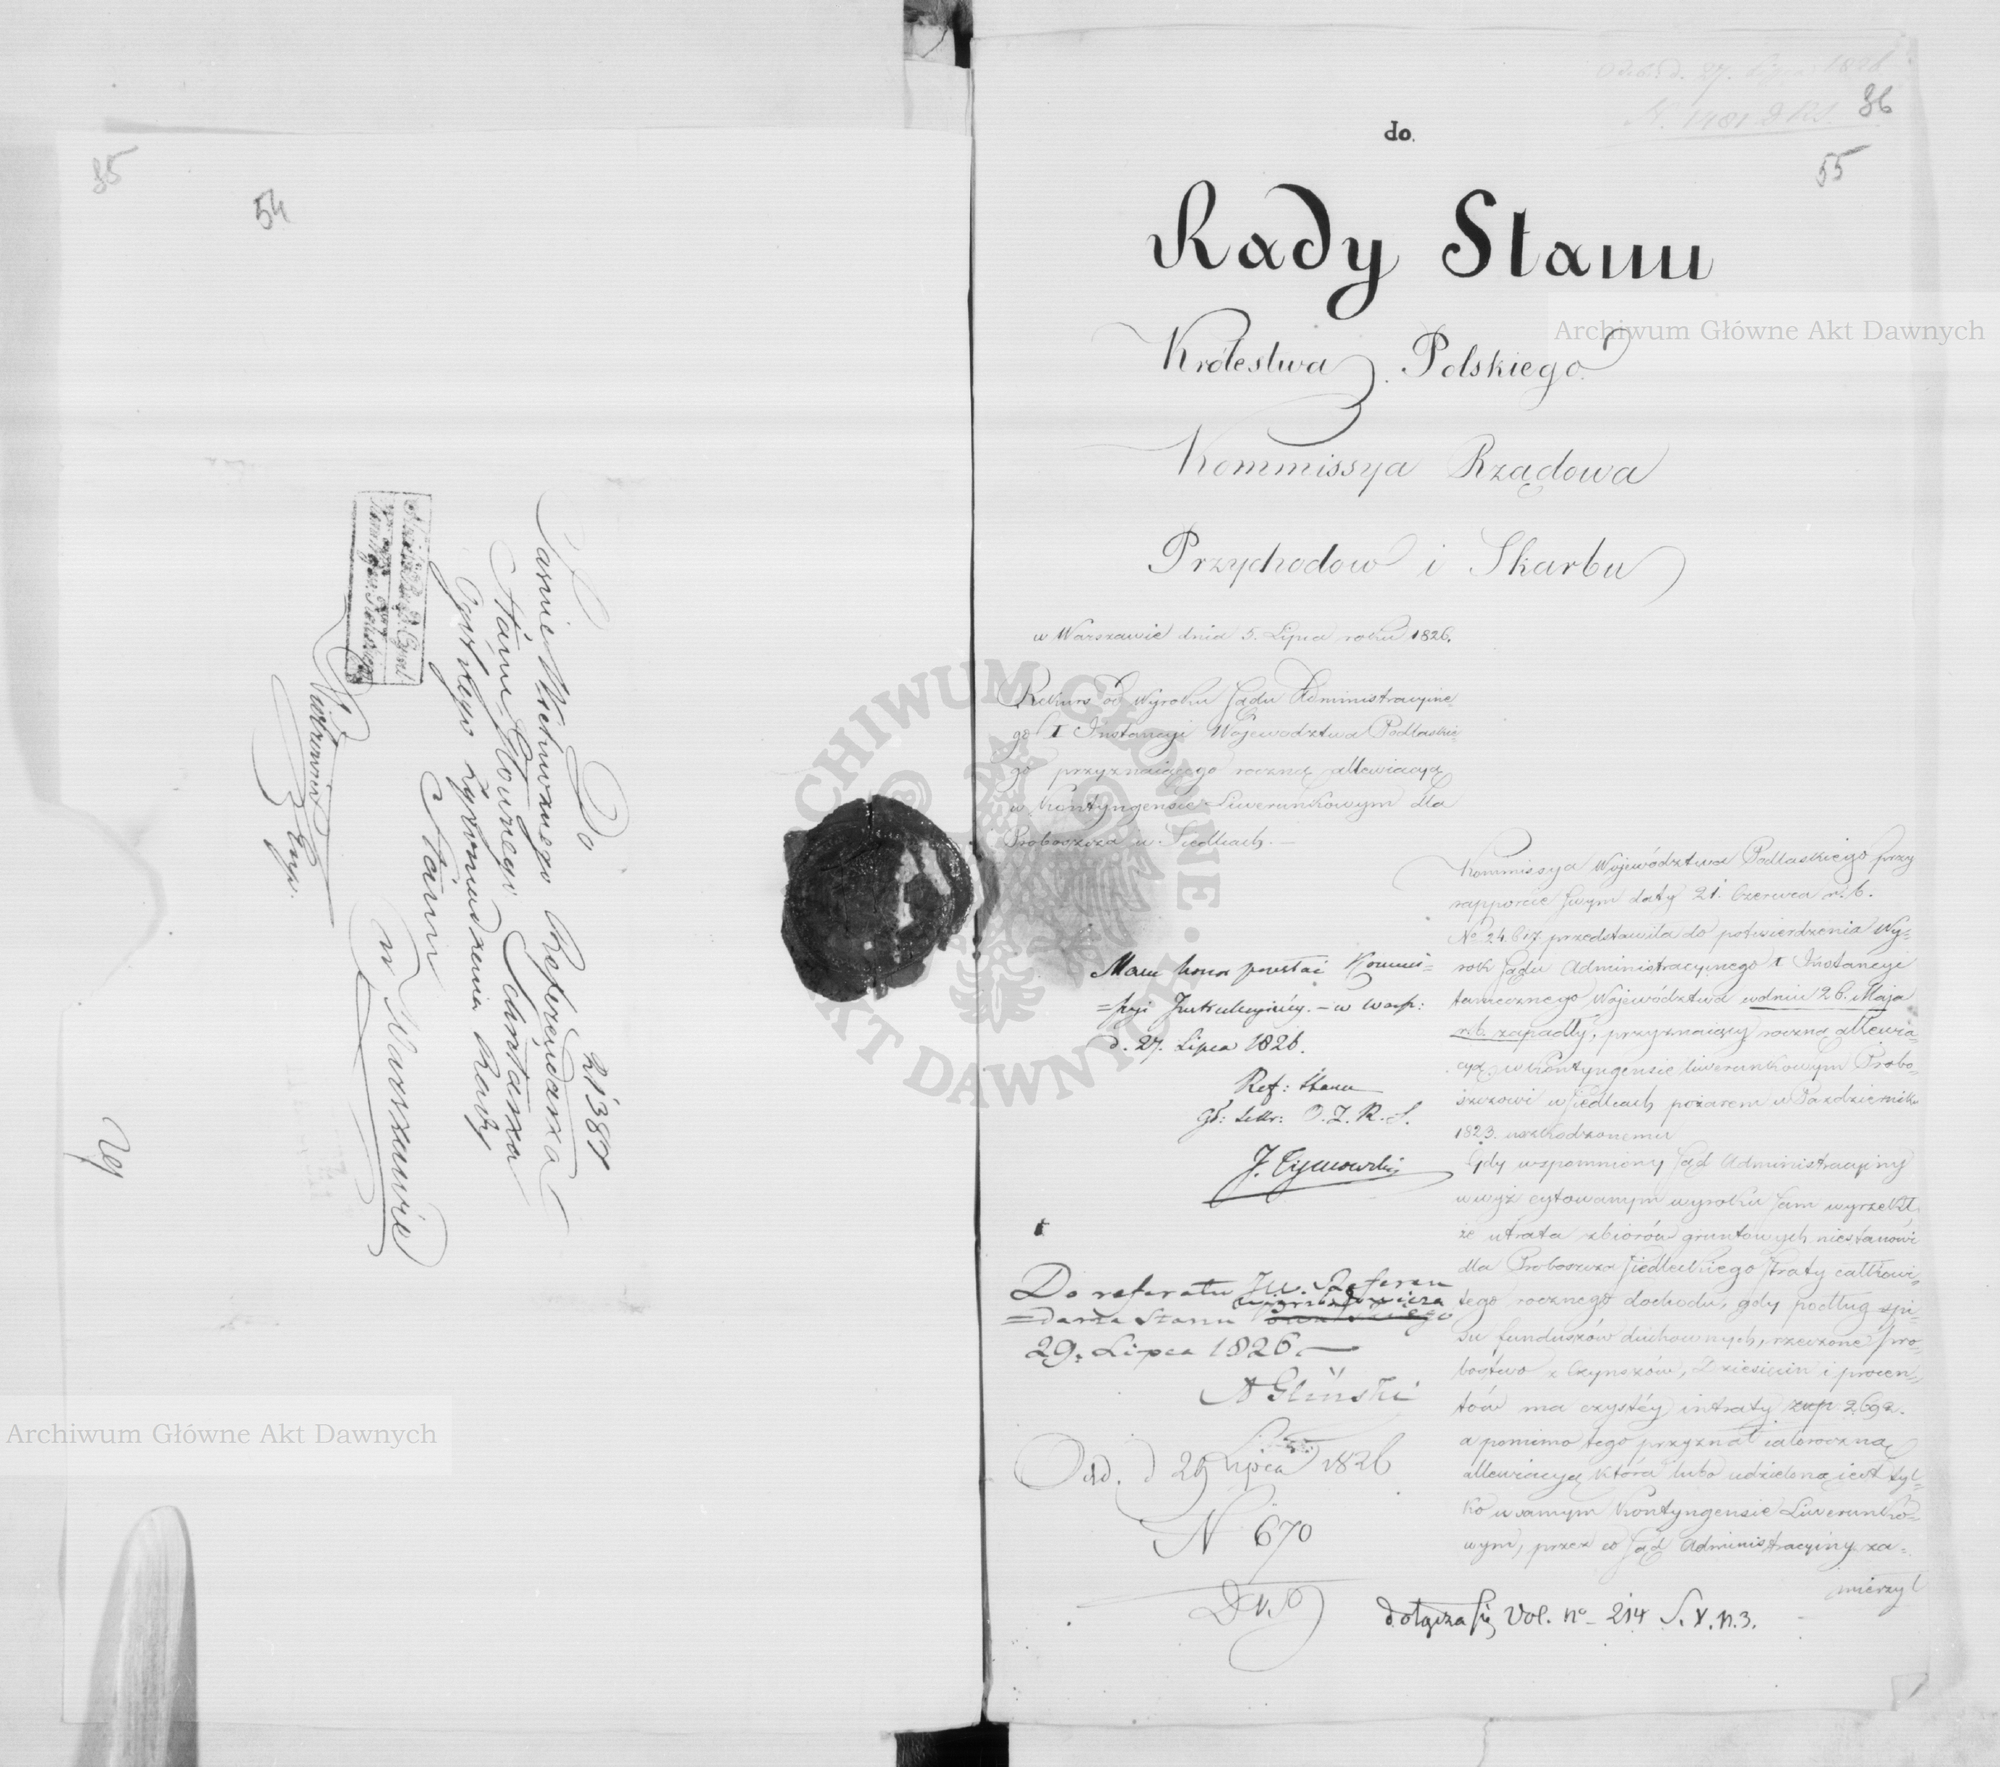 85
54
Do
Jaśnie Wielmożnego Referendarza
Stanu Głównego Sekretarza
Ogólnego Zgromadzenia Rady
Stanu
w Warszawie
21387
86
55
do
Rady Stanu
Królestwa Polskiego
Kommissya Rządowa
Przychodow i Skarbu
w Warszawie dnia 5. Lipca roku 1826.
Rekurs od Wyroku Sądu Administracyjne
go I Instancyi Województwa Podlaskie-
go przyznaiącego roczną allewiacyą
w Kontyngensie Liwerunkowym dla
Proboszcza w Siedlcach. —
Kommissya Województwa Podlaskiego przy
rapporcie swym daty 21. Czerwca r. b.
No 24617 przedstawiła do potwierdzenia Wy-
rok Sądu Administracyinego I Instancyi
tamecznego Województwa w dniu 26. Maja
r. b. zapadły, przyznaiący roczną allewia
cyą w Kontyngensie liwerunkowym Probo-
szczowi w Siedlcach pożarem w Październiku
1823. uszkodzonemu
Gdy wspomniony Sąd Administracyiny
w wyż cytowanym wyroku sam wyrzekł,
że utrata zbiorów gruntowych niestanowi
dla Proboszcza Siedleckiego straty całkowi-
tego rocznego dochodu, gdy podług spi-
su funduszów duchownych, rzeczone pro-
bostwo z Czynszów, Dziesięcin i procen-
tów ma czystéy intraty złp 2692.
a pomimo tego przyznał całoroczną
allewiacyą która lubo udzieloną iest tyl-
ko w samym Kontyngensie Liwerunko-
wym, przez co Sąd Administracyiny za-
mierzył
Mam honor przesłać Kommis-
=syi Instrukcyiney. — w Warsz:
d. 27. Lipca 1826.
Ref: Stanu
Gł: Sekr: O. Z. R. S.
J. Tymowski
Do referatu JW. Referen
=darza Stanu
29. Lipca 1826 —
A Gliński
Odd. d 29 Lipca 1826
N 670
dołącza się Vol. no 214 S. V. n. 3.
Archiwum Główne Akt Dawnych
Archiwum Główne Akt Dawnych
ARCHIWUM GŁÓWNE AKT DAWNYCH